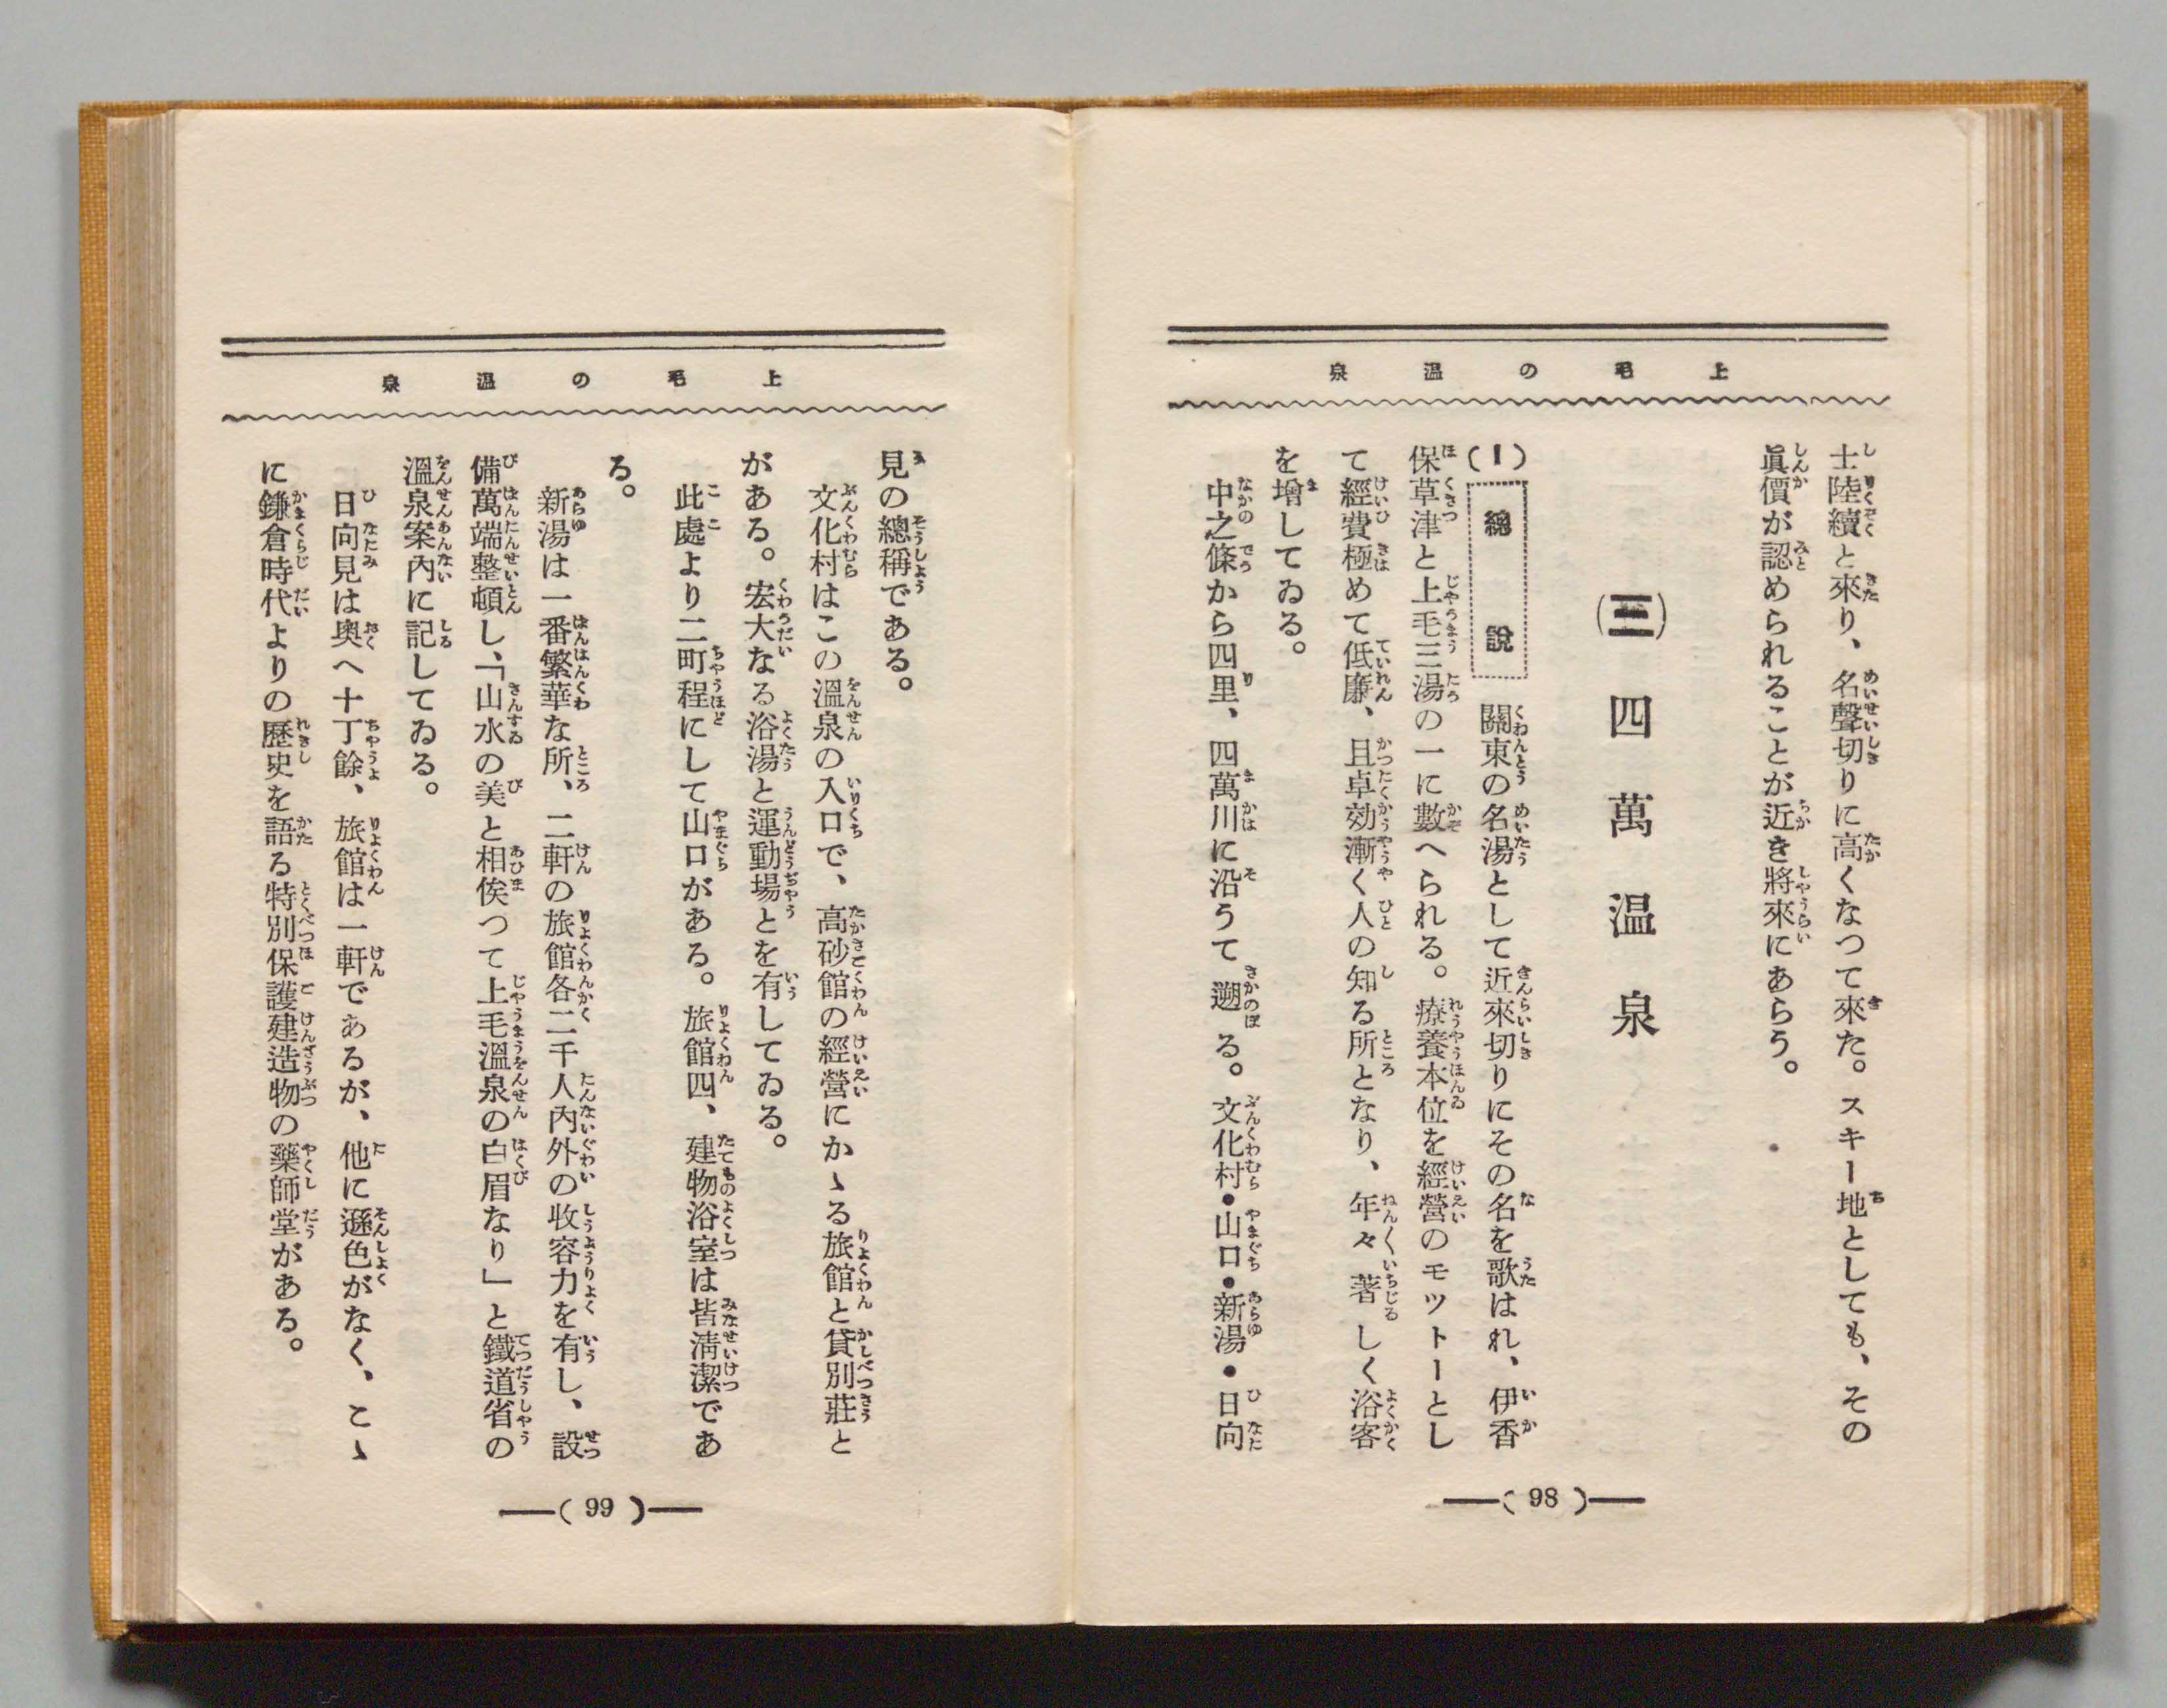 上毛の溫泉
士陸續と來り、名聲切りに高くなつて來た。スキー地としても、その
眞價が認められることが近き將來にあらう。
(三) 四萬溫泉
(1) 總說 關東の名湯として近來切りにその名を歌はれ、伊香
保草津と上毛三湯の一に數へられる。療養本位を經營のモツトーとし
て經費極めて低廉、且卓効漸く人の知る所となり、年々著しく浴客
を增してゐる。
中之條から四里、四萬川に沿うて遡る。文化村・山口・新湯・日向
(98)
上毛の溫泉
見の總稱である。
文化村はこの溫泉の入口で、高砂館の經營にかゝる旅館と貸別莊と
がある。宏大なる浴湯と運動場とを有してゐる。
此處より二町程にして山口がある。旅館四、建物浴室は皆淸潔であ
る。
新湯は一番繁華な所、二軒の旅館各二千人內外の收容力を有し、設
備萬端整頓し、「山水の美と相俟つて上毛溫泉の白眉なり」と鐵道省の
溫泉案內に記してゐる。
日向見は奥へ十丁餘、旅館は一軒であるが、他に遜色がなく、こゝ
に鎌倉時代よりの歷史を語る特別保護建造物の藥師堂がある。
(99)